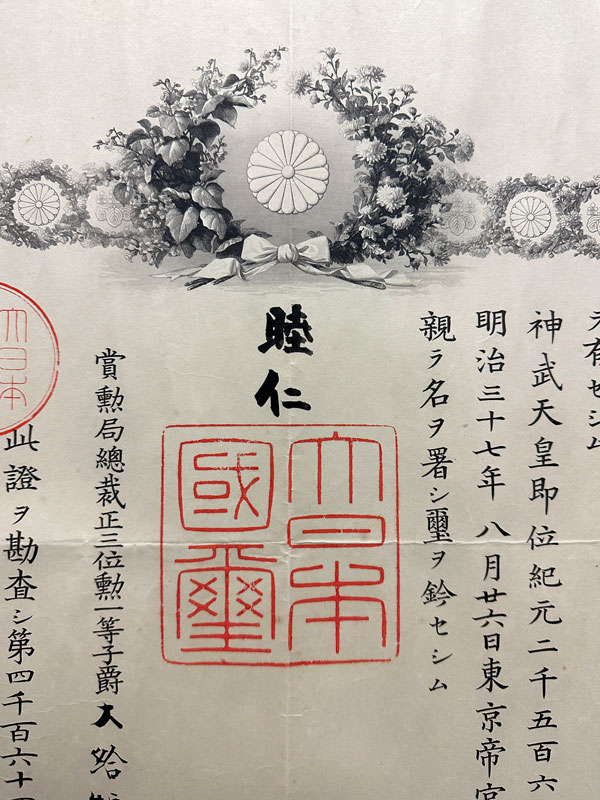 有セシム
神武天皇即位紀元二千五百六
明治三十七年八月廿六日東京帝宮
親ラ名ヲ署シ璽ヲ鈐セシム
睦仁
大日本
國璽
賞勲局總裁正三位勲一等子爵大給
大日本
此證ヲ勘査シ第四千百六十